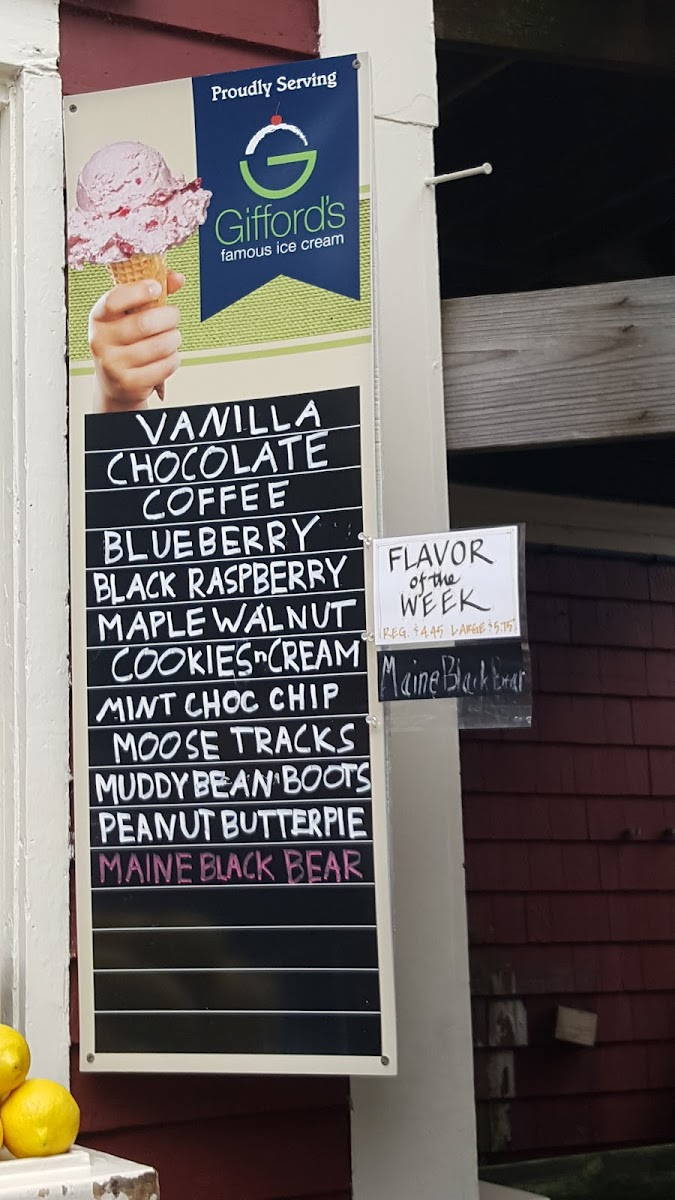 Proudly Serving
G
Gifford's
famous ice cream
VANILLA
CHOCOLATE
COFFEE
BLUEBERRY
BLACK RASPBERRY
MAPLE WALNUT
COOKIES n CREAM
MINT CHOC CHIP
MOOSE TRACKS
MUDDY BEAN BOOTS
PEANUT BUTTER PIE
MAINE BLACK BEAR
FLAVOR
of the
WEEK
REG. $4.45 LARGE $5.75
Maine Black Bear